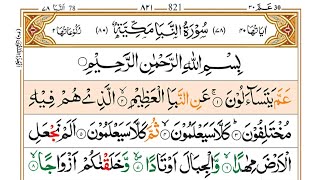 عَمَّ ٣٠ 821 ٨٢١ ٧٨ اَلنَّبَا ٧٩
اٰيَاتُهَا ٤٠ (٧٨) سُوْرَةُ النَّبَاِ مَكِّيَّةٌ (٨٠) رُكُوْعَاتُهَا ٢
بِسْمِ اللّٰهِ الرَّحْمٰنِ الرَّحِيْمِ
عَمَّ يَتَسَآءَلُوْنَ ۝١ عَنِ النَّبَاِ الْعَظِيْمِ ۝٢ الَّذِيْ هُمْ فِيْهِ
مُخْتَلِفُوْنَ ۝٣ كَلَّا سَيَعْلَمُوْنَ ۝٤ ثُمَّ كَلَّا سَيَعْلَمُوْنَ ۝٥ اَلَمْ نَجْعَلِ
الْاَرْضَ مِهٰدًا ۝٦ وَّالْجِبَالَ اَوْتَادًا ۝٧ وَّخَلَقْنٰكُمْ اَزْوَاجًا ۝٨